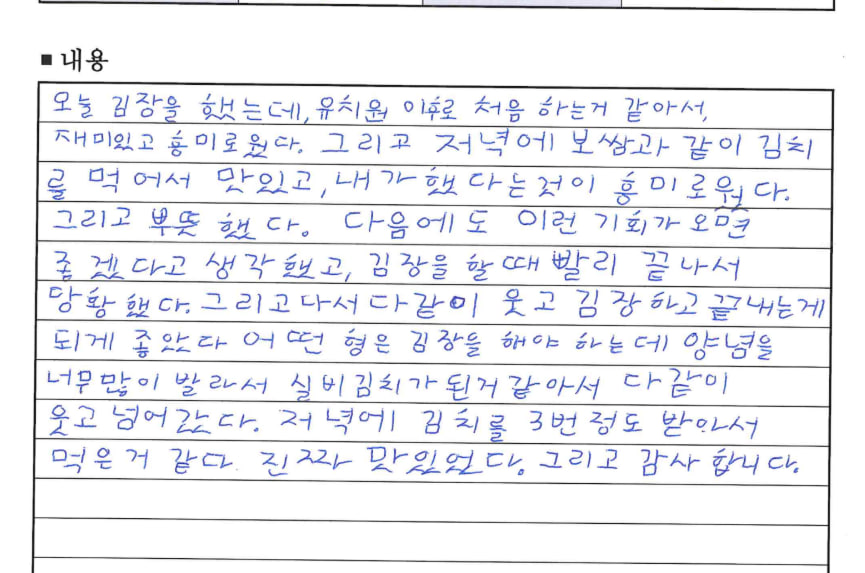 ■ 내용
오늘 김장을 했는데, 유치원 이후로 처음 하는거 같아서,
재미있고 흥미로웠다. 그리고 저녁에 보쌈과 같이 김치
를 먹어서 맛있고, 내가 했다는것이 흥미로웠다.
그리고 뿌듯했다. 다음에도 이런 기회가 오면
좋겠다고 생각했고, 김장을 할때 빨리 끝나서
당황했다. 그리고나서 다같이 웃고 김장하고 끝내는게
되게 좋았다 어떤 형은 김장을 해야 하는데 양념을
너무많이 발라서 실비김치가 된거같아서 다같이
웃고 넘어갔다. 저녁에 김치를 3번정도 받아서
먹은거 같다. 진짜 맛있었다. 그리고 감사합니다.